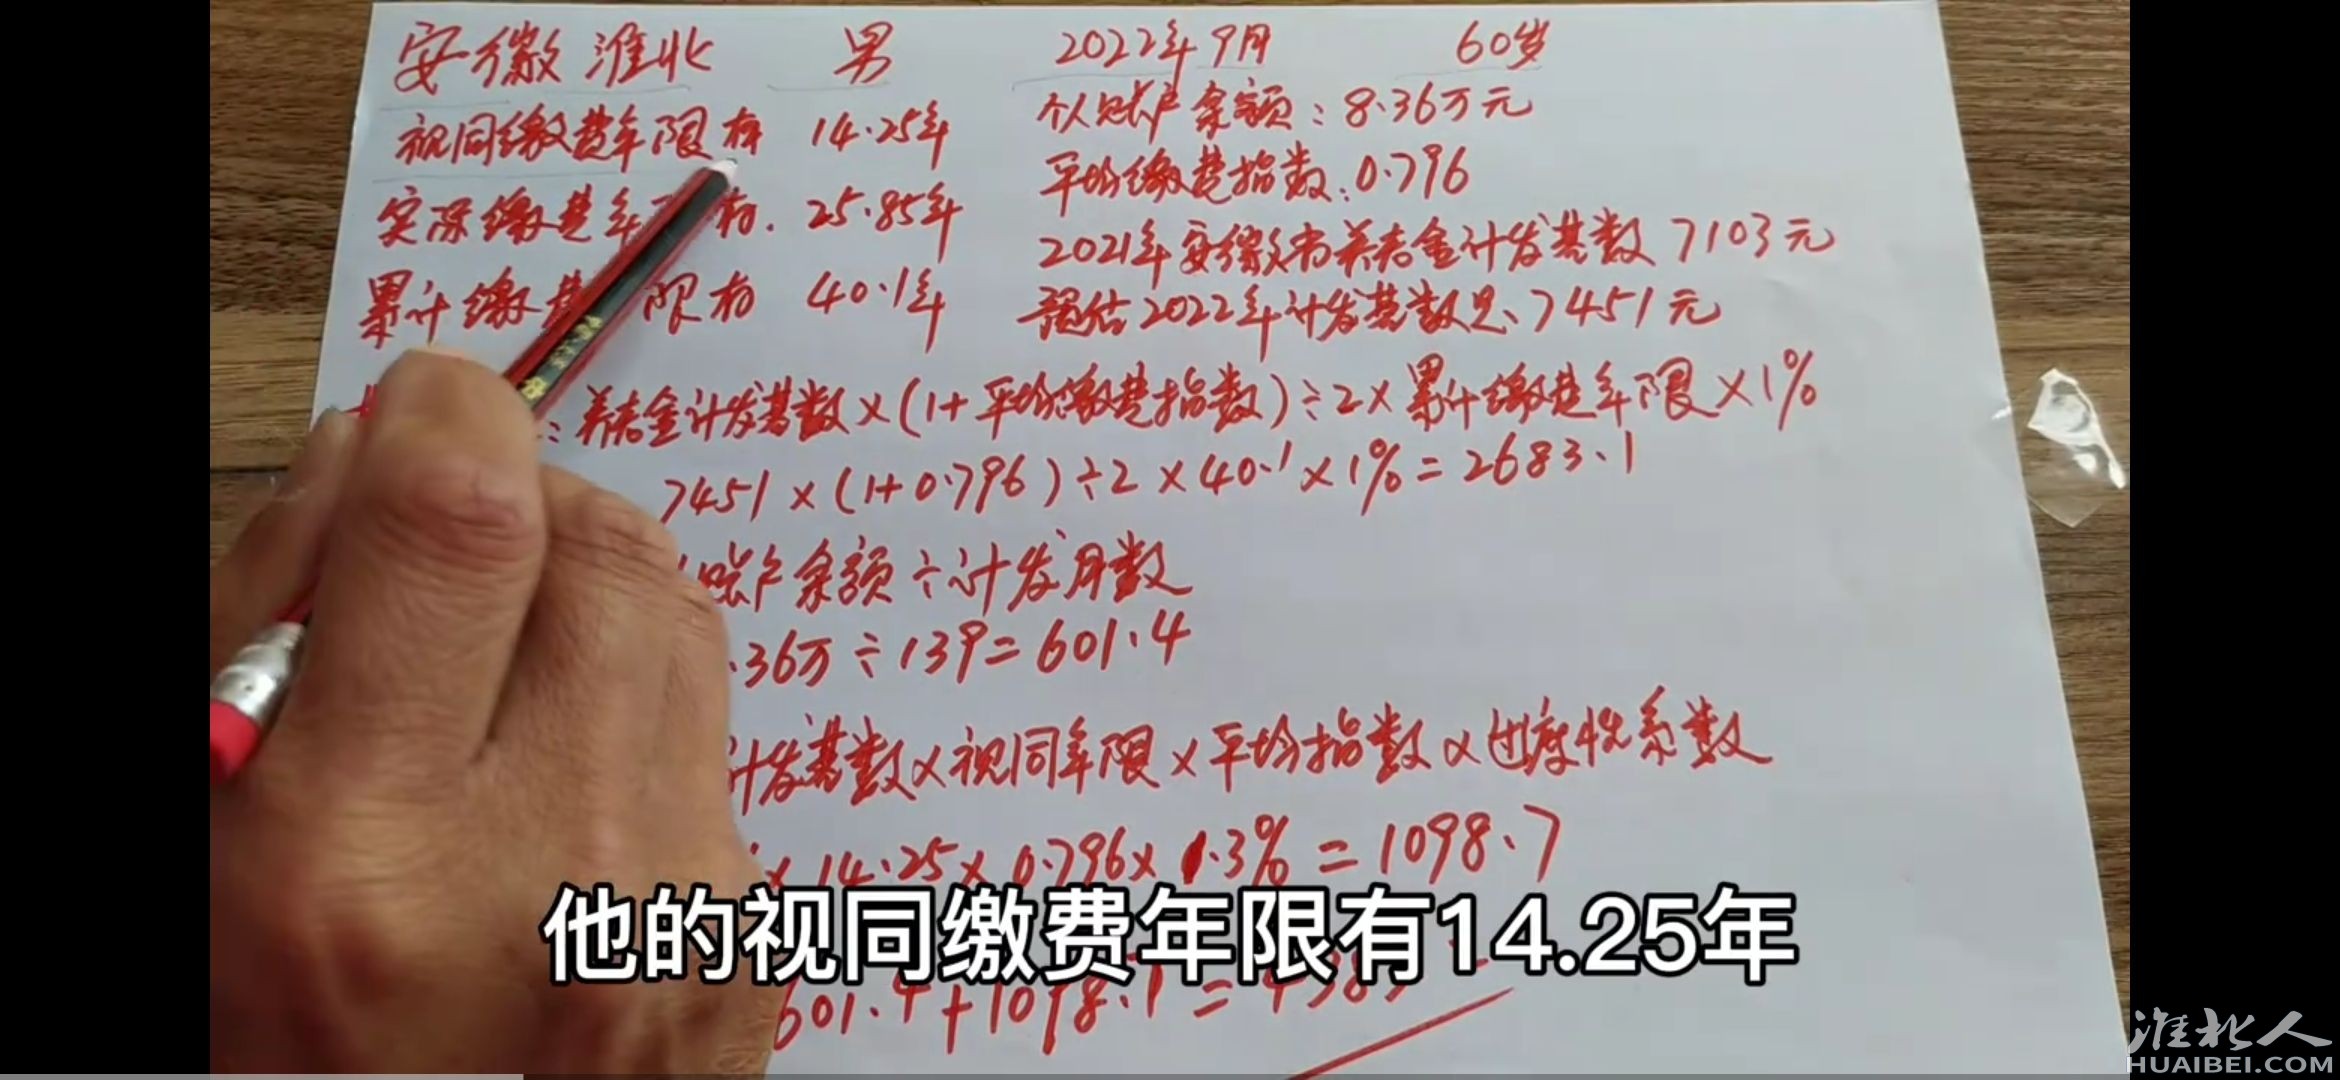 安徽 淮北 男 2022年9月 60岁
视同缴费年限有 14.25年
个人账户余额:8.36万元
平均缴费指数:0.796
实际缴费年 有. 25.85年
2021年安徽省养老金计发基数 7103元
累计缴费 限有 40.1年
预估2022年计发基数是、7451元
:养老金计发基数×(1+平均缴费指数)÷2×累计缴费年限×1%
7451×(1+0.796)÷2×40.1×1%=2683.1
账户余额÷计发月数
.36万÷139=601.4
计发基数×视同年限×平均指数×过渡性系数
×14.25×0.796×1.3%=1098.7
他的视同缴费年限有14.25年
601.4+1098.7=4383
淮北人
HUAIBEI.COM